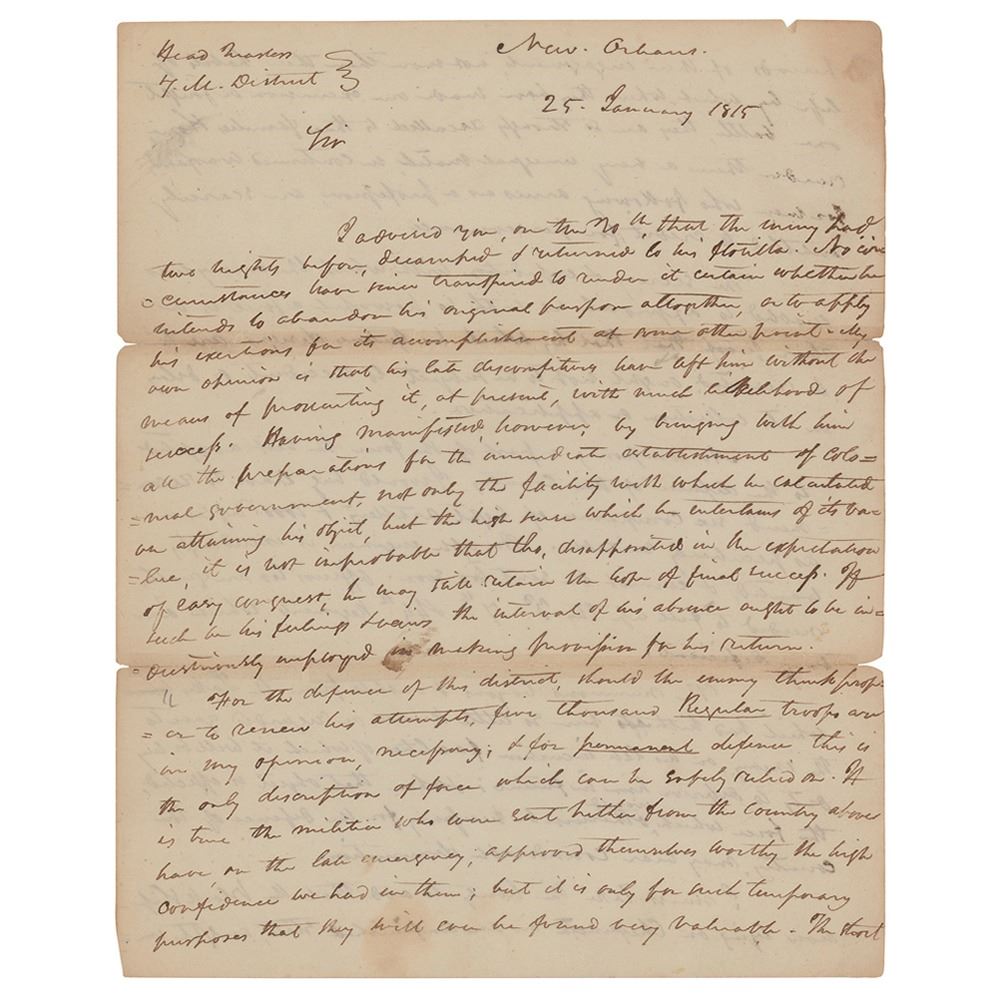 Head Quarters
7. M. District
New. Orleans.
25. January 1815
Sir
I advised you, on the 20th, that the enemy had
two nights before, decamped & returned to his flotilla. No cir
= cumstances have since transpired to render it certain whether he
intends to abandon his original purpose altogether, or to apply
his exertions for its accomplishment at some other point. My
own opinion is that his late discomfitures have left him without the
means of prosecuting it, at present, with much likelihood of
success. Having manifested, however, by bringing with him
all the preparations for the immediate establishment of Colo=
=nial government, not only the facility with which he calculated
on attaining his object, but the high sense which he entertains of its va=
=lue, it is not improbable that tho, disappointed in the expectation
of easy conquest, he may still retain the hope of final success. If
such be his feelings & views the interval of his absence ought to be in=
dustriously employed in making provision for his return.
" For the defence of this district, should the enemy think prop=
= er to renew his attempts, five thousand Regular troops are
in my opinion, necessary; & for permanent defence this is
the only discription of force which can be safely relied on. It
is true the militia who were sent hither from the Country above
have on the late emergency, approved themselves worthy the high
confidence we had in them; but it is only for such temporary
purposes that they will ever be found very valuable. The short